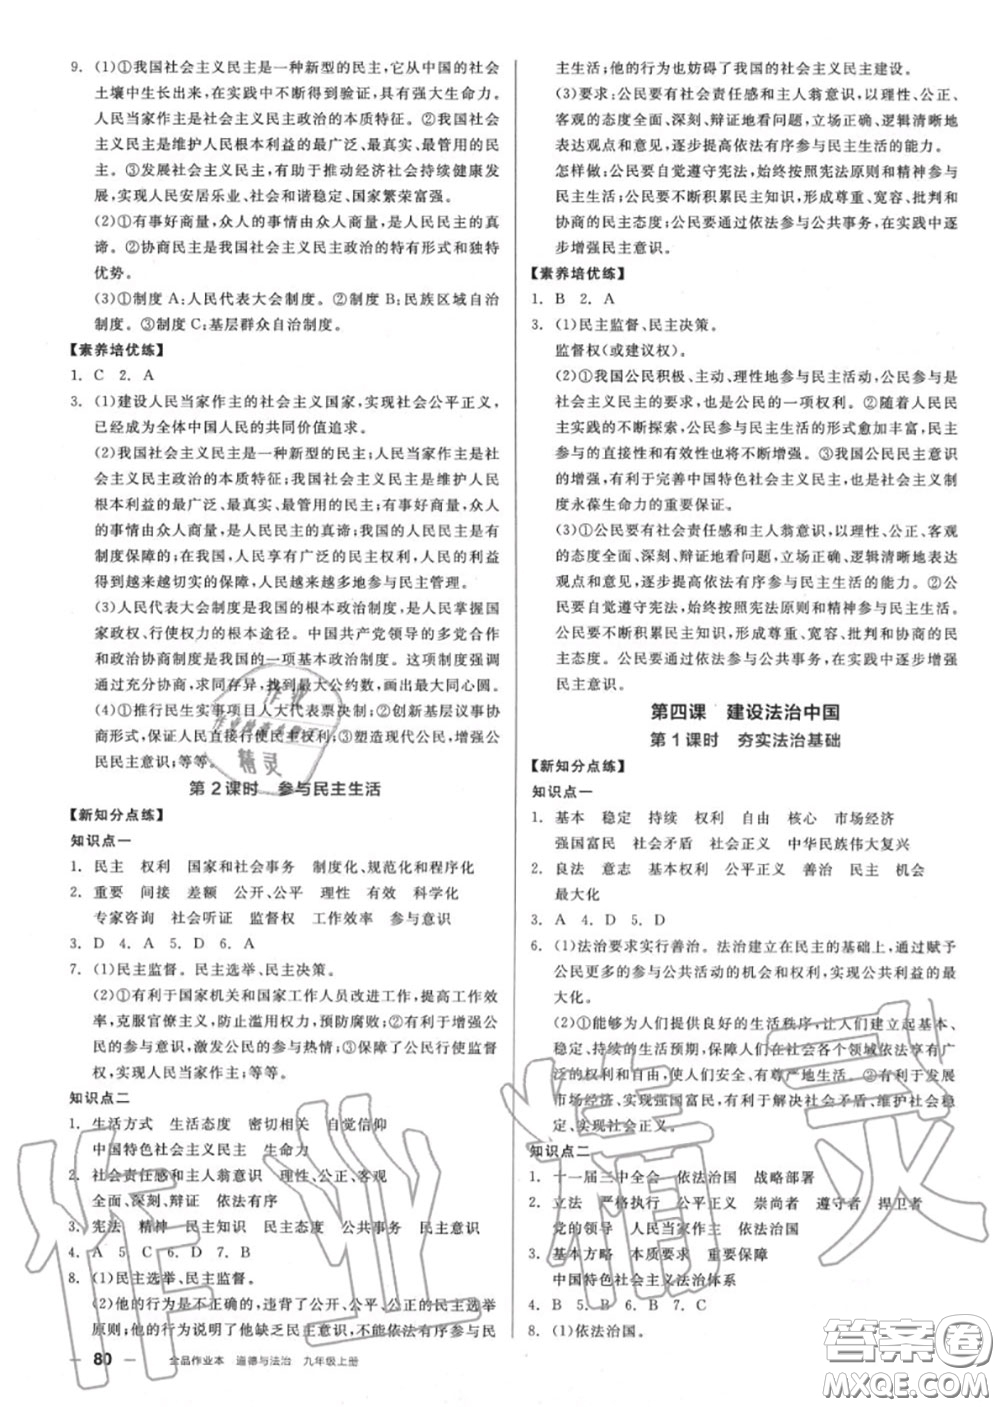 9. (1)①我国社会主义民主是一种新型的民主,它从中国的社会
土壤中生长出来,在实践中不断得到验证,具有生命力。
人民当家作主是社会主义民主政治的本质特征。②我国社会
主义民主是维护人民根本利益的最广泛、最真实、最管用的民
主。③发展社会主义民主,有助于推动经济社会持续健康发
展,实现人民安居乐业、社会和谐稳定、国家繁荣富强。
(2)①有事好商量,众人的事情由众人商量,是人民民主的真
谛。②协商民主是我国社会主义民主政治的特有形式和独特
优势。
(3)①制度A:人民代表大会制度。②制度B:民族区域自治
制度。③制度C:基层群众自治制度。
【素养培优练】
1. C 2. A
3. (1)建设人民当家作主的社会主义国家,实现社会公平正义,
已经成为全体中国人民的共同价值追求。
(2)我国社会主义民主是一种新型的民主;人民当家作主是社
会主义民主政治的本质特征;我国社会主义民主是维护人民
根本利益的最广泛、最真实、最管用的民主。有事好商量,众人
的事情由众人商量,是人民民主的真谛;我国的人民民主是有
制度保障的;在我国,人民享有广泛的民主权利,人民的利益
得到越来越切实的保障,人民越来越多地参与民主管理。
(3)人民代表大会制度是我国的根本政治制度,是人民掌握国
家政权、行使权力的根本途径。中国共产党领导的多党合作
和政治协商制度是我国的一项基本政治制度。这项制度强调
通过充分协商,求同存异,找到最大公约数,画出最大同心圆。
(4)①推行民生实事项目人大代表票决制;②创新基层议事协
商形式,保证人民直接行使民主权利;③塑造现代公民,增强
民主意识;等等。
第2课时 参与民主生活
【新知分点练】
知识点一
1. 民主 权利 国家和社会事务 制度化、规范化和程序化
2. 重要 间接 差额 公开、公平 理性 有效 科学化
专家咨询 社会听证 监督权 工作效率 参与意识
3. D 4. A 5. D 6. A
7. (1)民主监督。民主选举、民主决策。
(2)①有利于国家机关和国家工作人员改进工作,提高工作效
率,克服官僚主义,防止滥用权力,预防腐败;②有利于增强公
民的参与意识,激发公民的参与热情;③保障了公民行使监督
权,实现人民当家作主;等等。
知识点二
1. 生活方式 生活态度 密切相关 自觉信仰
中国特色社会主义民主 生命力
2. 社会责任感和主人翁意识 理性、公正、客观
全面、深刻、辩证 依法有序
3. 宪法 精神 民主知识 民主态度 公共事务 民主意识
4. A 5. C 6. D 7. B
8. (1)民主选举、民主监督。
(2)他的行为是不正确的,违背了公开、公平、公正的民主选举
原则;他的行为说明了他缺乏民主意识,不能依法有序参与民
80
全品作业本 道德与法治 九年级上册
主生活;他的行为也妨碍了我国的社会主义民主建设。
(3)要求:公民要有社会责任感和主人翁意识,以理性、公正、
客观的态度全面、深刻、辩证地看问题,立场正确、逻辑清晰地
表达观点和意见,逐步提高依法有序参与民主生活的能力。
怎样做:公民要自觉遵守宪法,始终按照宪法原则和精神参与
民主生活;公民要不断积累民主知识,形成尊重、宽容、批判和
协商的民主态度;公民要通过依法参与公共事务,在实践中逐
步增强民主意识。
【素养培优练】
1. B 2. A
3. (1)民主监督、民主决策。
监督权(或建议权)。
(2)①我国公民积极、主动、理性地参与民主活动,是社会主义
是社会主义民主的要求,也是公民的一项权利。②随着人民民
主实践的不断探索,公民参与民主生活的形式愈加丰富,民主
参与的直接性和有效性也将不断增强。③我国公民民主意识
的增强,有利于完善中国特色社会主义民主,是社会主义制
度永葆生命力的重要保证。
(3)①公民要有社会责任感和主人翁意识,以理性、公正、客观
的态度全面、深刻、辩证地看问题,立场正确、逻辑清晰地表达
观点和意见,逐步提高依法有序参与民主生活的能力。②公
民要自觉遵守宪法,始终按照宪法原则和精神参与民主生活。
公民要不断积累民主知识,形成尊重、宽容、批判和协商的民
主态度。公民要通过依法参与公共事务,在实践中逐步增强
民主意识。
第四课 建设法治中国
第1课时 夯实法治基础
【新知分点练】
知识点一
1. 基本 稳定 持续 权利 自由 核心 市场经济
强国富民 社会矛盾 社会正义 中华民族伟大复兴
2. 良法 意志 基本权利 公平正义 善治 民主 机会
最大化
3. A 4. D 5. D
6. (1)法治要求实行善治。法治建立在民主的基础上,通过赋予
公民更多的参与公共活动的机会和权利,实现公共利益的最
大化。
(2)①能够为人们提供良好的生活秩序,让人们建立起基本、
稳定、持续的生活预期,保障人们在社会各个领域依法享有广
泛的权利和自由,使人们安全、有尊严地生活。②有利于发展
市场经济,实现强国富民,有利于解决社会矛盾,维护社会稳
定,实现社会正义。
知识点二
1. 十一届三中全会 依法治国 战略部署
2. 立法 严格执行 公平正义 崇尚者 遵守者 捍卫者
党的领导 人民当家作主 依法治国
3. 基本方略 本质要求 重要保障
中国特色社会主义法治体系
4. B 5. B 6. B 7. B
8. (1)依法治国。
作业精灵
作业精灵
答案圈
MXQE.COM